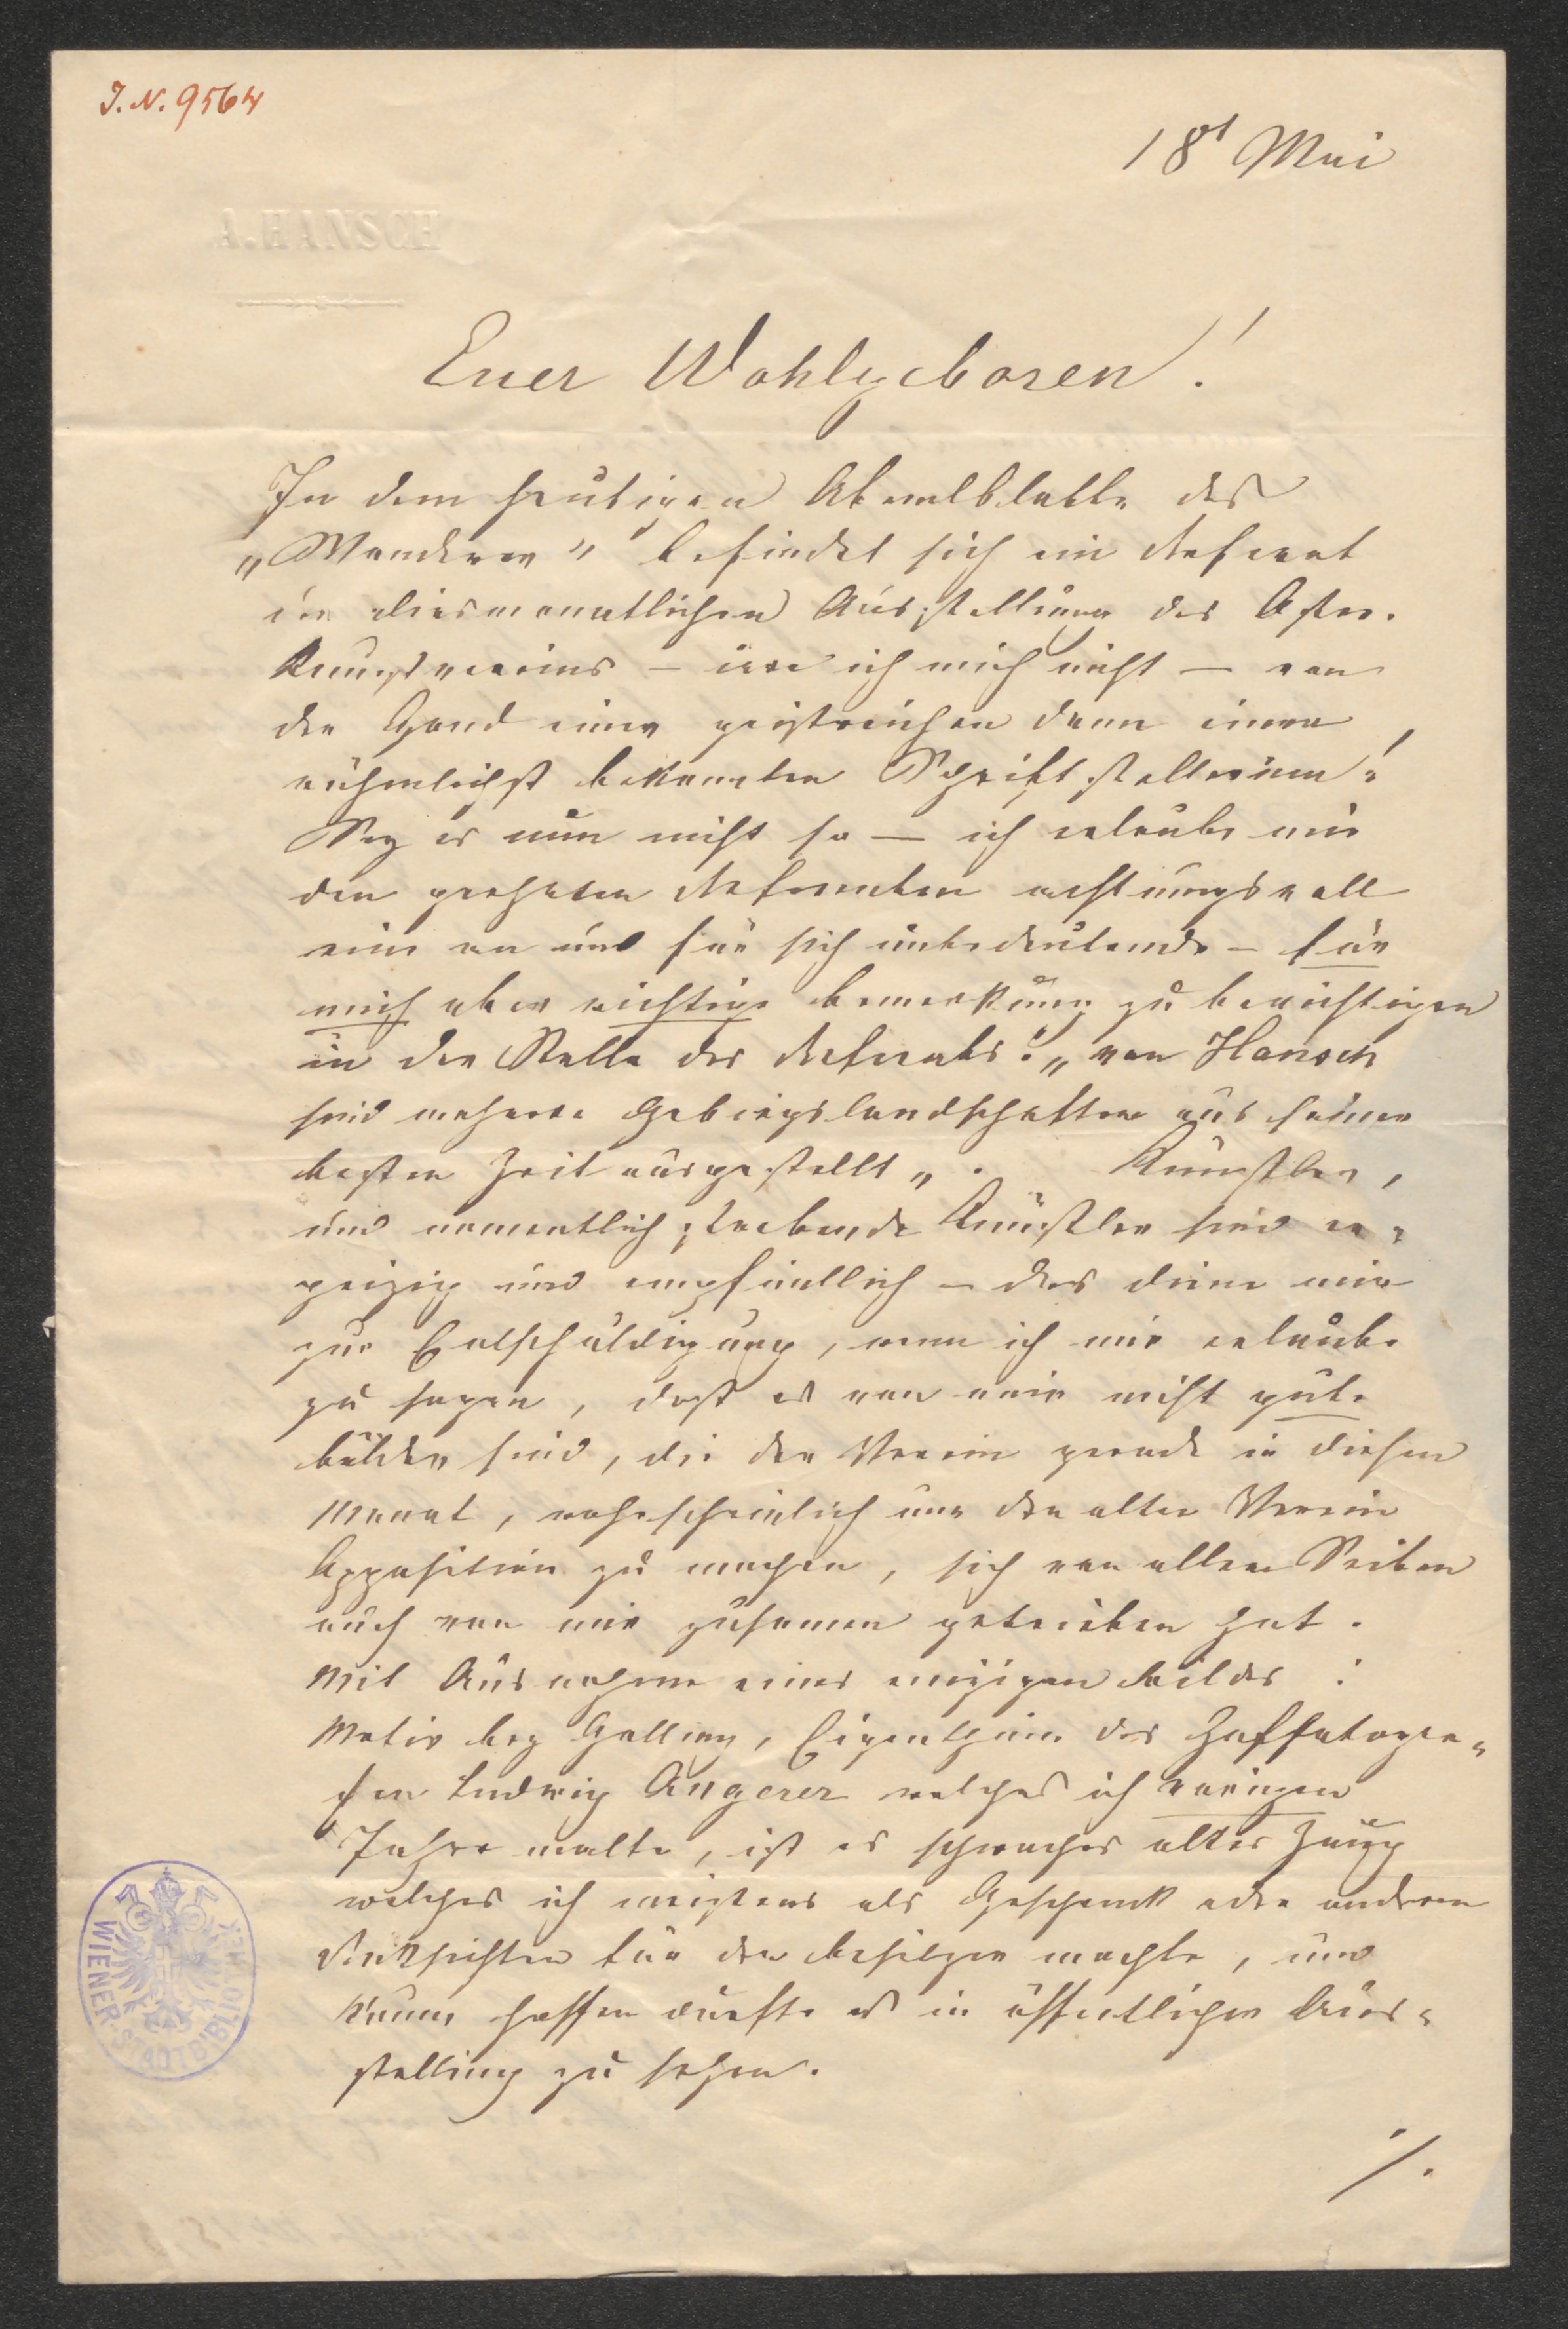 J. N. 9564
18t Mai
A. HANSCH
Euer Wohlgeboren!
In dem heutigen Abendblatte des
„Wanderer" befindet sich ein Referat
der diesmonatlichen Ausstellung des Österr.
Kunstvereins – irre ich mich nicht – von
der Hand einer geistreichen denn einer
rühmlichst bekannten Schriftstellerinn!
Sey es nun nicht so – ich erlaube mir
den geehrten Referenten achtungsvoll
eine an und für sich unbedeutende – für
mich aber wichtige Bemerkung zu berichtigen
in der Stelle des Referats: „von Hansch
sind mehrere Gebirgslandschaften aus seiner
besten Zeit ausgestellt„. Künstler,
und namentlich strebende Künstler sind er-
geizig und empfindlich – das diene mir
zur Entschuldigung, wenn ich mir erlaube
zu sagen, daß es von mir nicht gute
Bilder sind, die der Verein gerade in diesen
Monat, wahrscheinlich um den alten Verein
Opposition zu machen, sich von allen Seiten
auch von mir zusamen getrieben hat.
Mit Ausnahme eines einzigen Bildes:
Motiv bey Golling, Eigenthum des Hoffotogra-
fen Ludwig Angerer welches ich vorigen
Jahre malte, ist es schwaches altes Zeug
welches ich meistens als Geschenk oder anderen
Rücksichten für den Besitzer machte, und
kaum hoffen durfte es in öffentlicher Aus-
stellung zu sehen.
./.
WIENER STADTBIBLIOTHEK